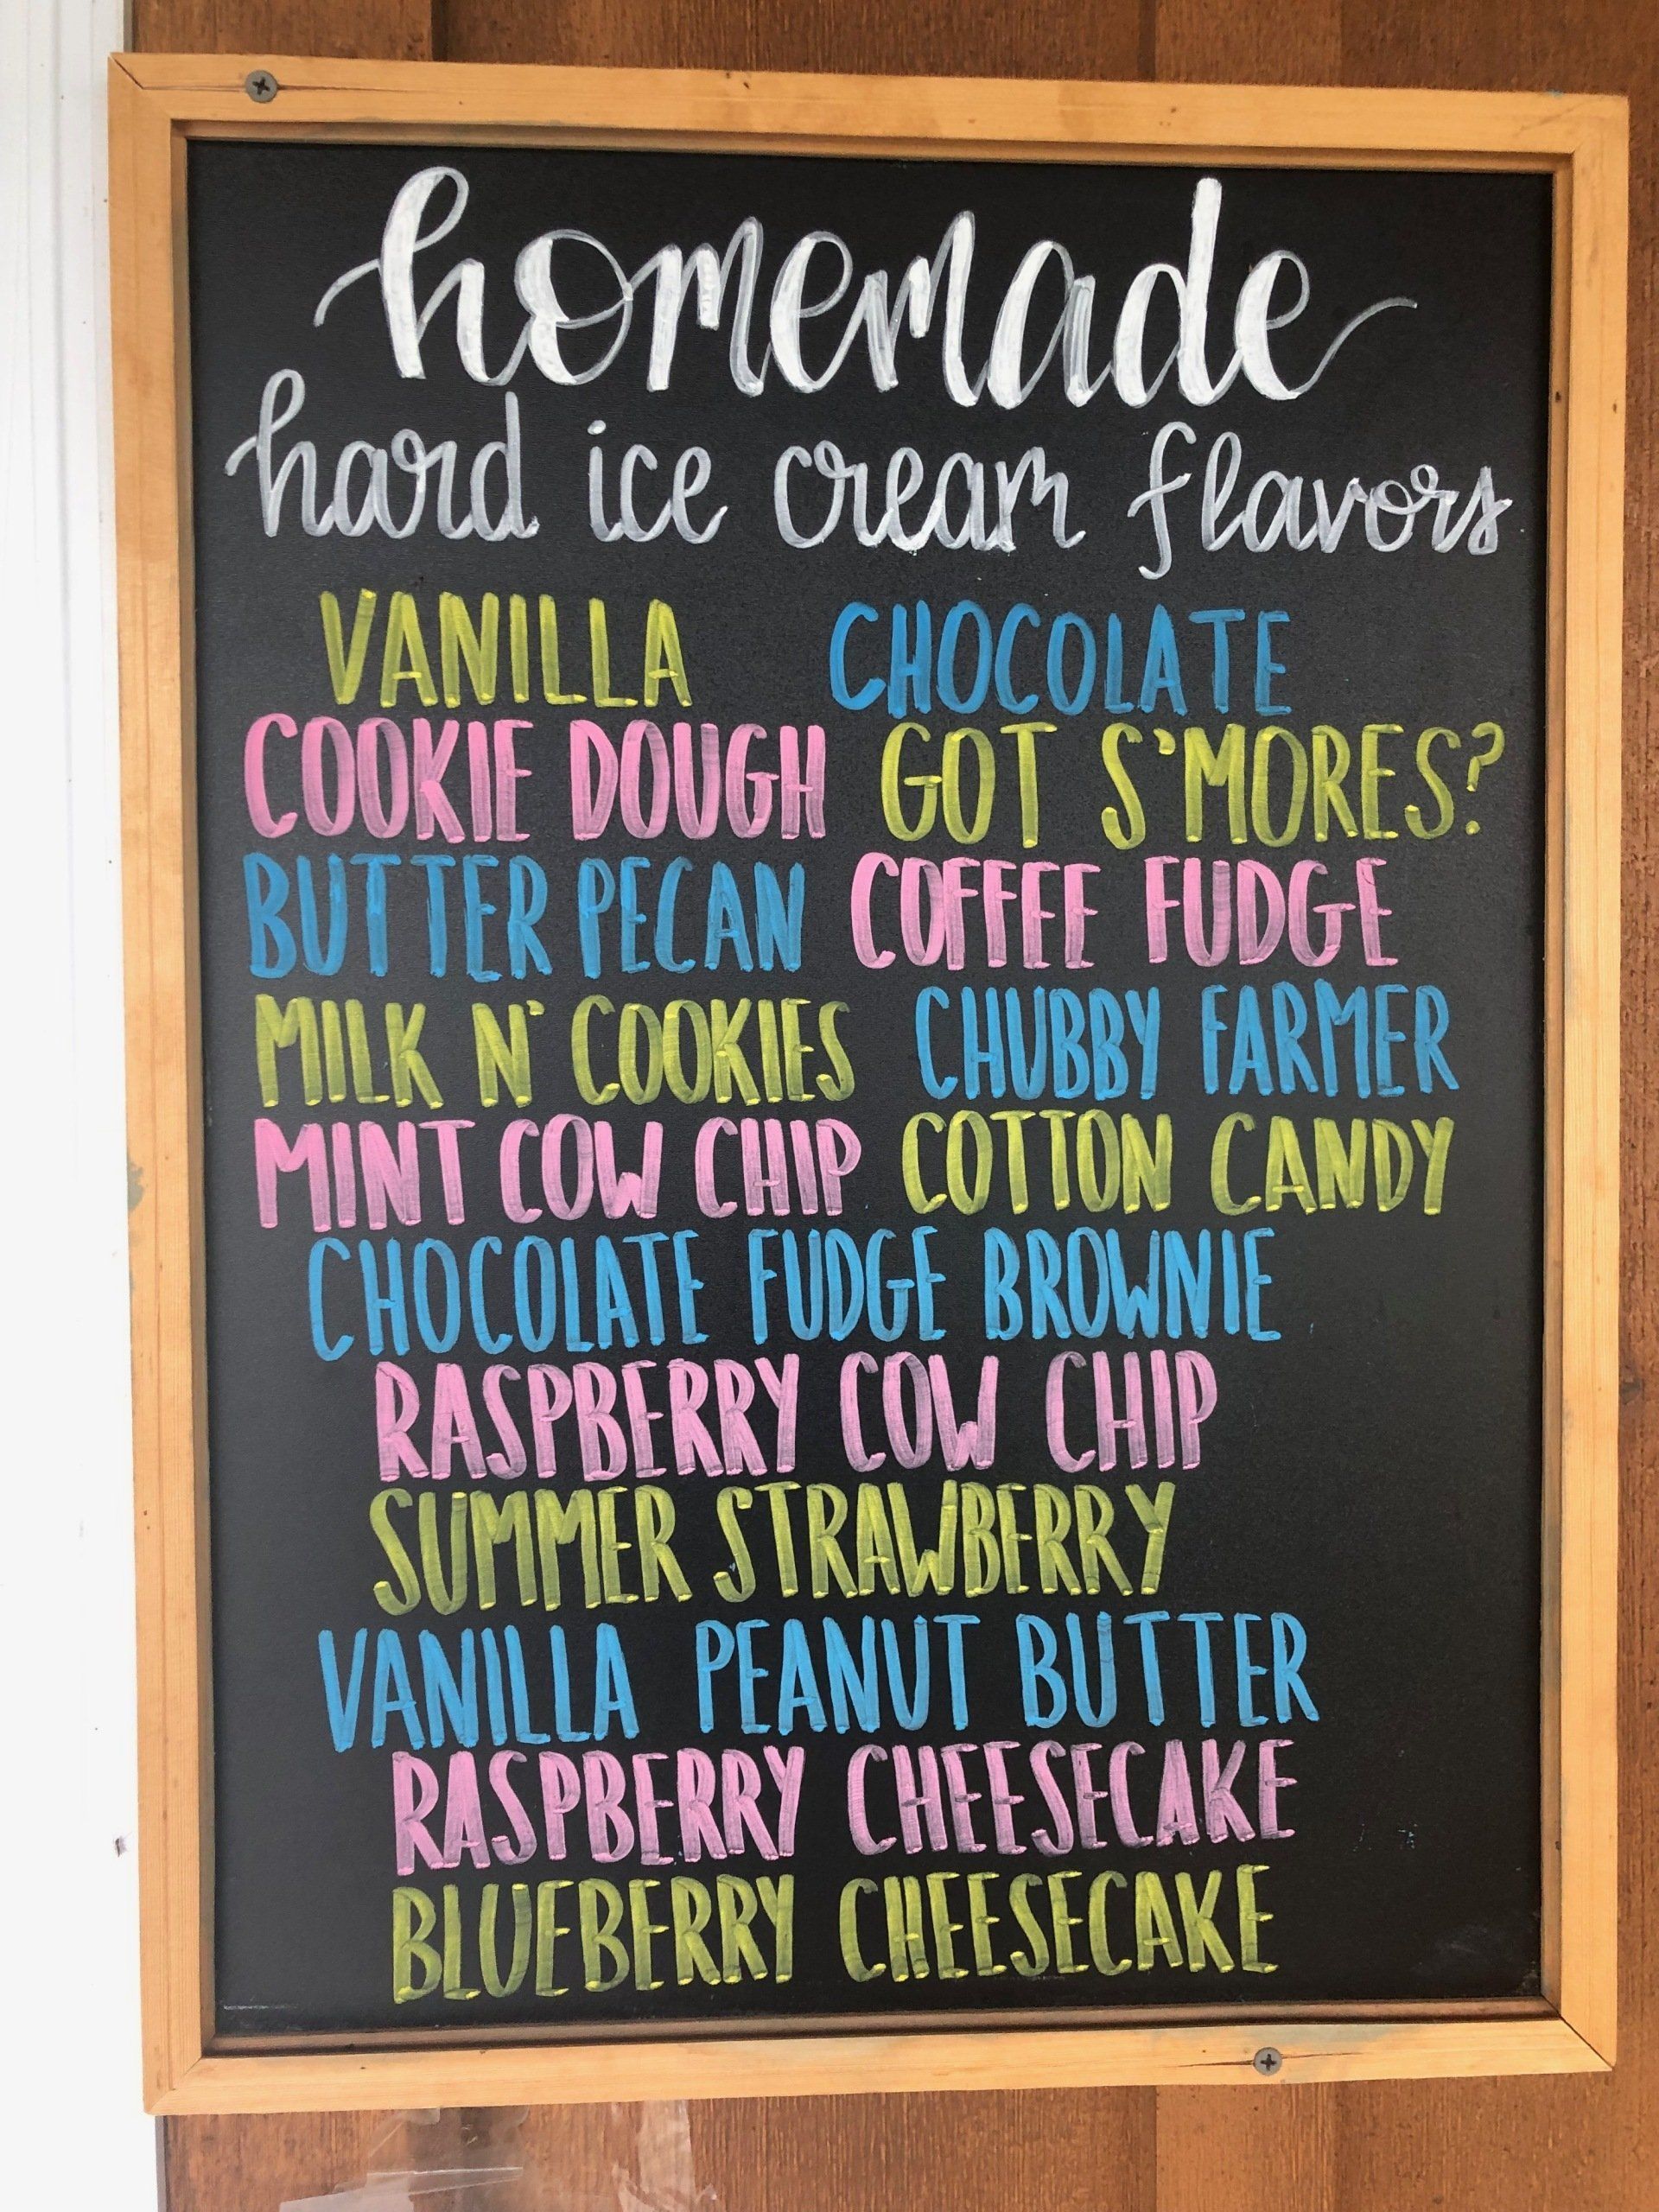 homemade
hard ice cream flavors
VANILLA CHOCOLATE
COOKIE DOUGH GOT S'MORES?
BUTTER PECAN COFFEE FUDGE
MILK N' COOKIES CHUBBY FARMER
MINT COW CHIP COTTON CANDY
CHOCOLATE FUDGE BROWNIE
RASPBERRY COW CHIP
SUMMER STRAWBERRY
VANILLA PEANUT BUTTER
RASPBERRY CHEESECAKE
BLUEBERRY CHEESECAKE